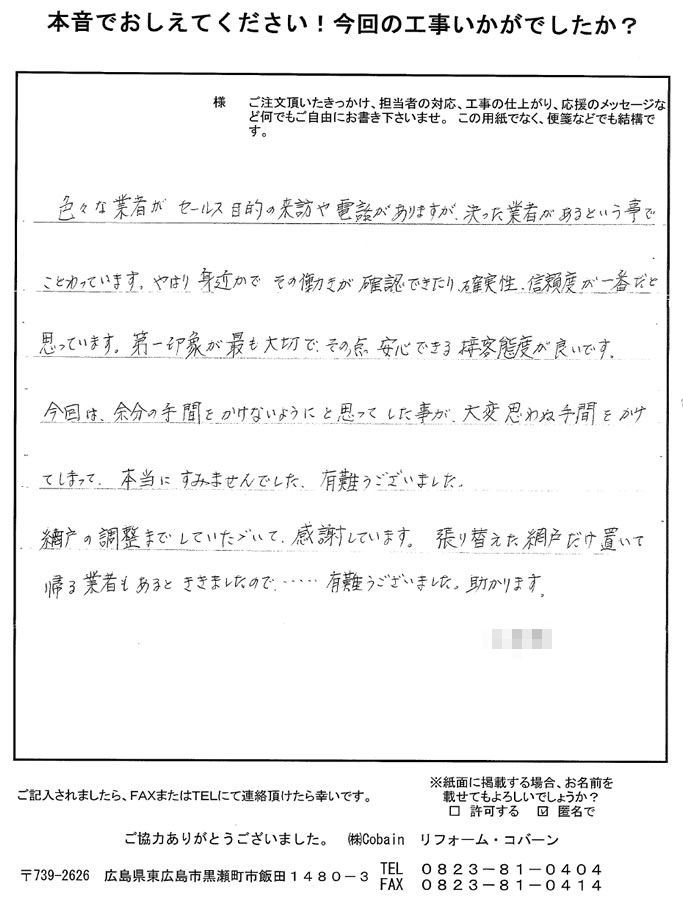 本音でおしえてください！今回の工事いかがでしたか？
様　ご注文頂いたきっかけ、担当者の対応、工事の仕上がり、応援のメッセージな
ど何でもご自由にお書き下さいませ。 この用紙でなく、便箋などでも結構で
す。
色々な業者が セールス目的の来訪や電話がありますが、決った業者があるという事で
ことわっています。やはり身近かで その働きが 確認できたり、確実性、信頼度が一番だと
思っています。第一印象が最も大切で、その点 安心できる 接客態度が良いです。
今回は、余分の手間をかけないようにと思ってした事が、大変思わぬ手間をかけ
てしまって、本当にすみませんでした。有難うございました。
網戸の調整までしていただいて、感謝しています。 張り替えた網戸だけ置いて
帰る業者もあると ききましたので、‥‥‥ 有難うございました。助かります。
ご記入されましたら、FAXまたはTELにて連絡頂けたら幸いです。
※紙面に掲載する場合、お名前を
載せてもよろしいでしょうか？
□ 許可する ☑ 匿名で
ご協力ありがとうございました。 ㈱Cobain リフォーム・コバーン
〒739-2626 広島県東広島市黒瀬町市飯田１４８０－３
TEL ０８２３－８１－０４０４
FAX ０８２３－８１－０４１４